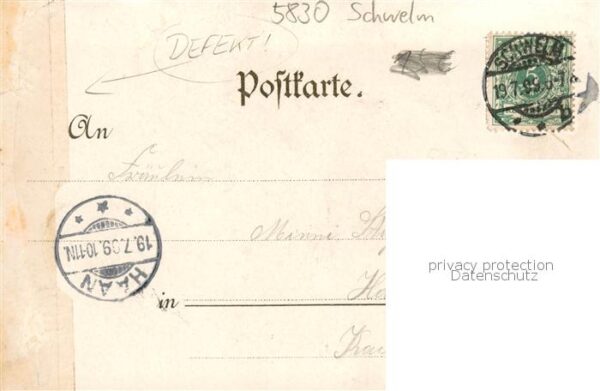 5830 Schwelm
DEFEKT!
SCHWELM
19.7.
b
Postkarte.
An
Fräulein
Minni
in
HAAN
19.7.99.10-11N.
privacy protection
Datenschutz